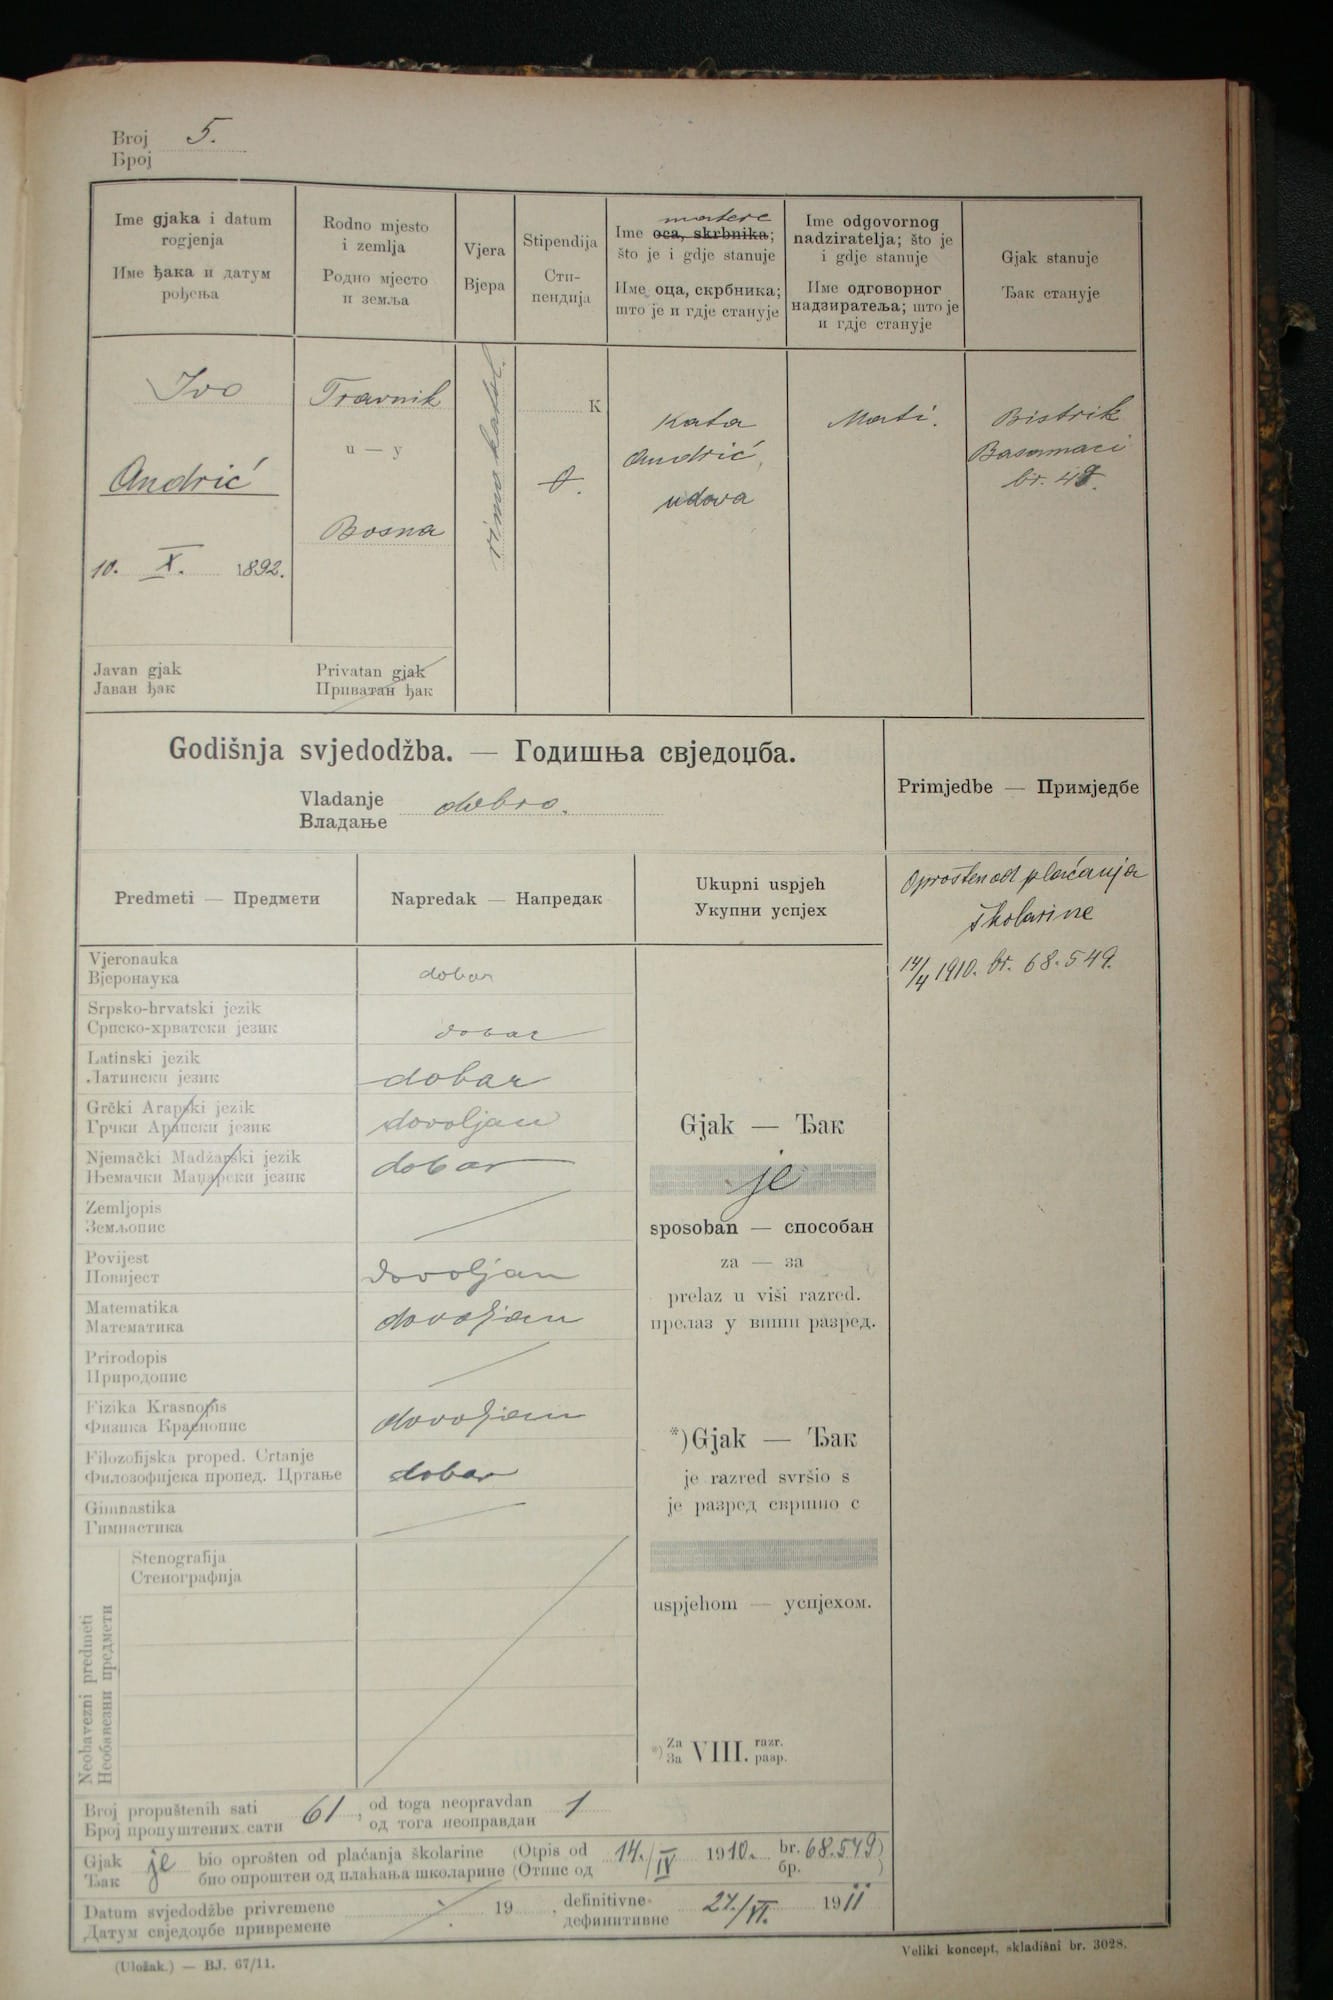 Broj 5.
Број
Ime gjaka i datum
rogjenja
Име ђака и датум
рођења
Rodno mjesto
i zemlja
Родно мјесто
и земља
Vjera
Вјера
Stipendija
Сти-
пендија
matere
Ime oca, skrbnika;
što je i gdje stanuje
Име оца, скрбника;
што је и гдје станује
Ime odgovornog
nadziratelja; što je
i gdje stanuje
Име одговорног
надзиратеља; што је
и гдје станује
Gjak stanuje
Ђак станује
Ivo
Andrić
10. X. 1892.
Travnik
u — у
Bosna
rimo katol.
K
0.
Kata
Andrić,
udova
Mati.
Bistrik
Basamaci
br.
Javan gjak
Јаван ђак
Privatan gjak
Приватан ђак
Godišnja svjedodžba. — Годишња свједоџба.
Vladanje dobro.
Владање
Primjedbe — Примједбе
Predmeti — Предмети
Napredak — Напредак
Ukupni uspjeh
Укупни успјех
Oprošten od plaćanja
školarine
14/4 1910. br. 68.549.
Vjeronauka
Вјеронаука
dobar
Srpsko-hrvatski jezik
Српско-хрватски језик
dobar
Latinski jezik
Латински језик
dobar
Grčki Arapski jezik
Грчки Арапски језик
dovoljan
Njemački Madžarski jezik
Њемачки Маџарски језик
dobar
Zemljopis
Земљопис
Povijest
Повијест
dovoljan
Matematika
Математика
dovoljan
Prirodopis
Природопис
Fizika Krasnopis
Физика Краснопис
dovoljan
Filozofijska proped. Crtanje
Филозофијска пропед. Цртање
dobar
Gimnastika
Гимнастика
Neobavezni predmeti
Необавезни предмети
Stenografija
Стенографија
Gjak — Ђак
je
sposoban — способан
za — за
prelaz u viši razred.
прелаз у виши разред.
*) Gjak — Ђак
je razred svršio s
је разред свршио с
uspjehom — успјехом.
*) Za VIII. razr.
За разр.
Broj propuštenih sati 61, od toga neopravdan 1
Број пропуштених сати од тога неоправдан
Gjak je bio oprošten od plaćanja školarine (Otpis od 14./IV 1910. br. 68.549)
Ђак био опроштен од плаћања школарине (Отпис од бр. )
Datum svjedodžbe privremene 19 , definitivne 27./VI. 1911
Датум свједоџбе привремене дефинитивне
(Uložak.) — BJ. 67/11.
Veliki koncept, skladišni br. 3028.